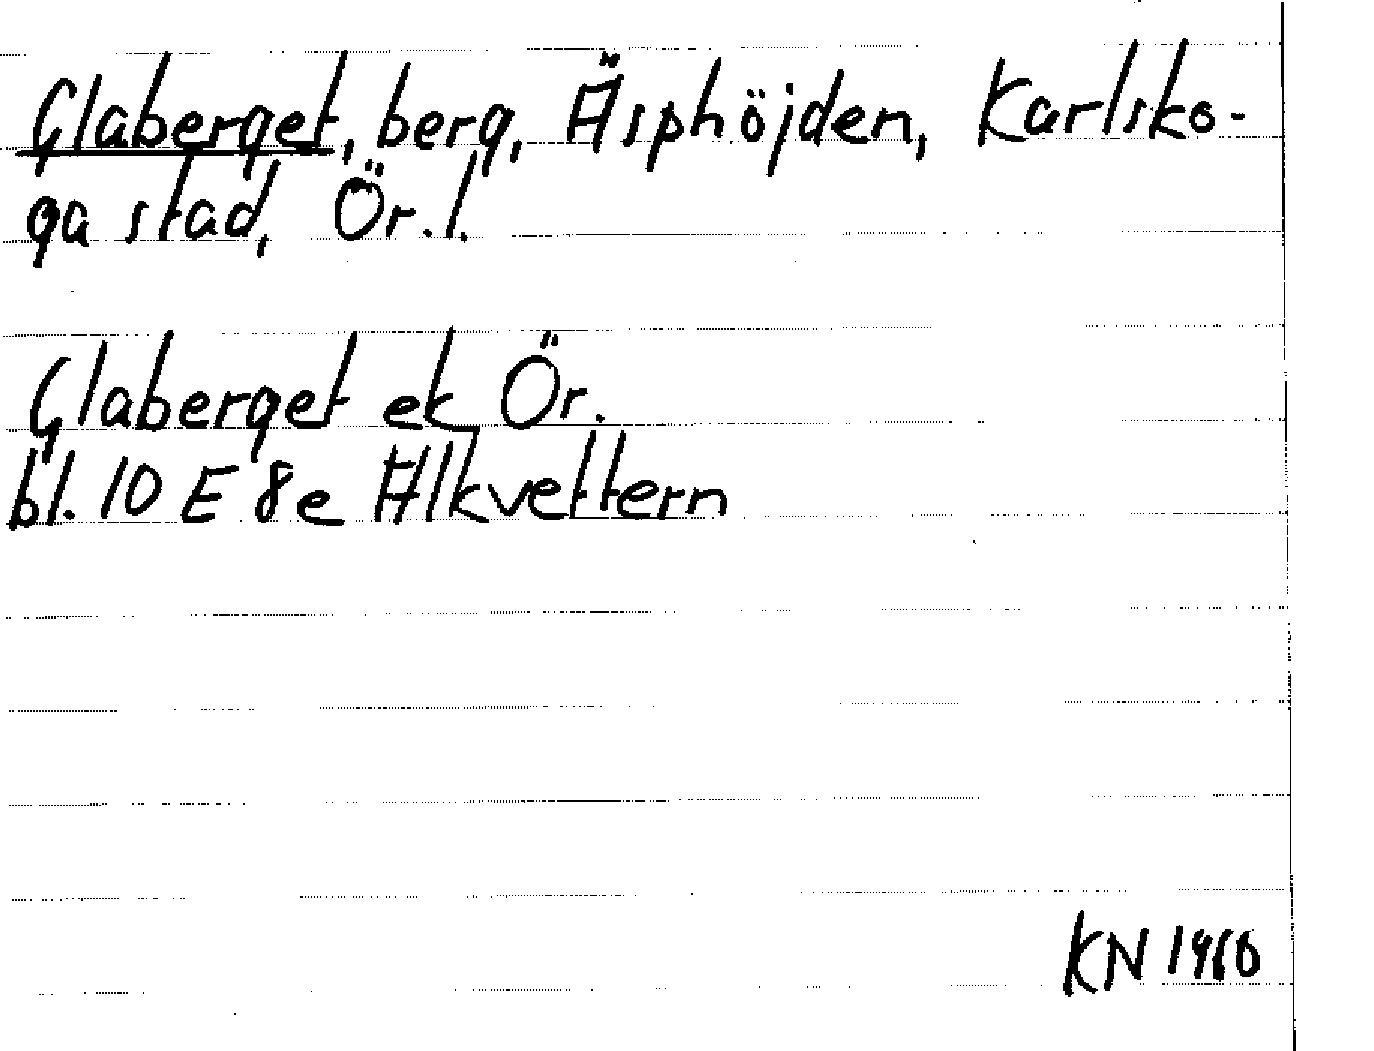 Glaberget, berg, Äsphöjden, Karlsko-
ga stad, Ör. l.
Glaberget ek Ör.
bl. 10 E 8e Alkvettern
KN 1960